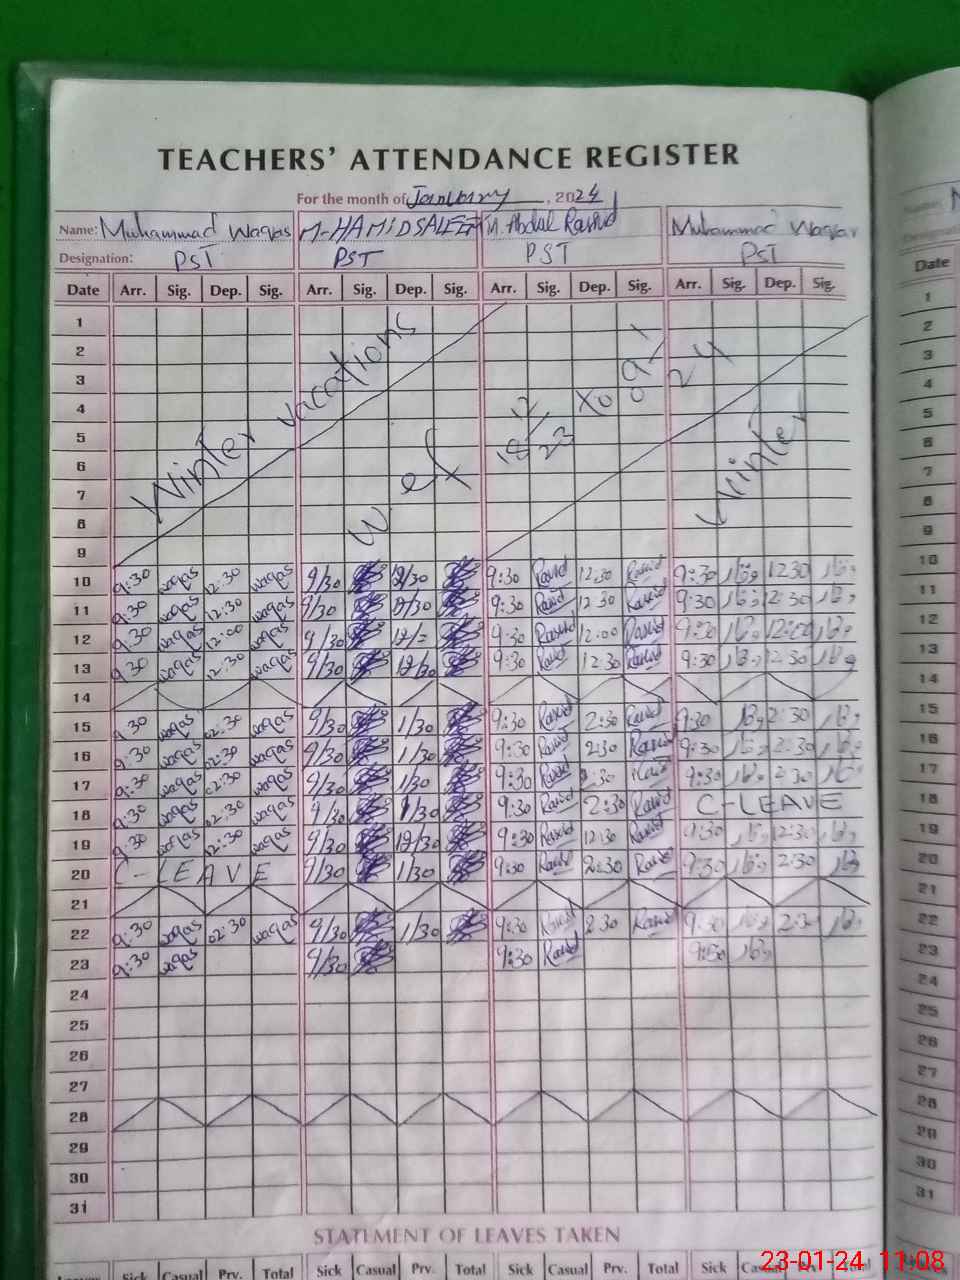 TEACHERS' ATTENDANCE REGISTER
For the month of January, 2024
Name: Muhammad Waqas M-HAMID SALEEM M. Abdul Rashid Muhammad Waqar
Designation: PST PST PST PST
Date Arr. Sig. Dep. Sig. Arr. Sig. Dep. Sig. Arr. Sig. Dep. Sig. Arr. Sig. Dep. Sig. Date
1 1
2 2
3 3
4 4
5 5
6 6
7 7
8 8
9 9
Winter vacations w.ef 18/12/23 to 09-1 24 Winter
10 9:30 waqas 12:30 waqas 9/30 12/30 9:30 Rashid 12:30 Rashid 9:30 وقار 12:30 وقار 10
11 9:30 waqas 12:30 waqas 9/30 12/30 9:30 Rashid 12:30 Rashid 9:30 وقار 12:30 وقار 11
12 9:30 waqas 12:00 waqas 9/30 12/ 9:30 Rashid 12:00 Rashid 9:30 وقار 12:00 وقار 12
13 9:30 waqas 12:30 waqas 9/30 12/30 9:30 Rashid 12:30 Rashid 9:30 وقار 12:30 وقار 13
14 14
15 9:30 waqas 02:30 waqas 9/30 1/30 9:30 Rashid 2:30 Rashid 9:30 وقار 2:30 وقار 15
16 9:30 waqas 02:30 waqas 9/30 1/30 9:30 Rashid 2:30 Rashid 9:30 وقار 2:30 وقار 16
17 9:30 waqas 02:30 waqas 9/30 1/30 9:30 Rashid 2:30 Rashid 9:30 وقار 2:30 وقار 17
18 9:30 waqas 02:30 waqas 9/30 1/30 9:30 Rashid 2:30 Rashid C-LEAVE 18
19 9:30 waqas 12:30 waqas 9/30 12/30 9:30 Rashid 12:30 Rashid 9:30 وقار 12:30 وقار 19
20 C-LEAVE 9/30 1/30 9:30 Rashid 2:30 Rashid 9:30 وقار 2:30 وقار 20
21 21
22 9:30 waqas 02:30 waqas 9/30 1/30 9:30 Rashid 2:30 Rashid 9:30 وقار 2:30 وقار 22
23 9:30 waqas 9/30 9:30 Rashid 9:30 وقار 23
24 24
25 25
26 26
27 27
28 28
29 29
30 30
31 31
STATEMENT OF LEAVES TAKEN
Sick Casual Prv. Total Sick Casual Prv. Total Sick Casual Prv. Total Sick Casual Prv. Total
23-01-24 11:08